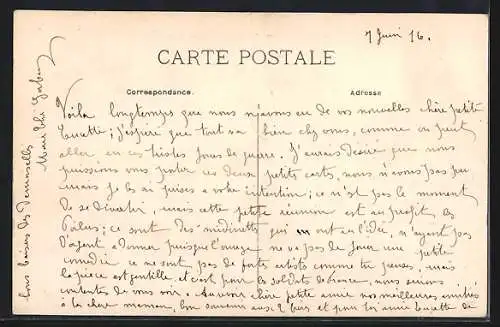 7 Juin 16.
CARTE POSTALE
Correspondance.
Adresse
Voila longtemps que nous n'avons eu de vos nouvelles chère petite
Lucette; j'espère que tout va bien chez vous, comme on peut
aller en ces tristes jours de guerre. J'aurais désiré que nous
puissions vous porter ces deux petits carts, nous n'avons pas pu
mais je les ai prises a votre intention; ce n'est pas le moment
de se divertir, mais cette petite réunion est au profit des
Poilus; ce sont des "midinettes" qui en ont eu l'idée, n'ayant pas
d'argent a donner puisque l'ouvrage ne va pas de jouer une petite
comédie ce ne sont pas de fortes artistes comme tu penses, mais
la pièce est gentille et c'est pour les soldats de France, nous serions
contentes de vous voir. Au revoir chère petite amie nos meilleures amitiés
à ta chère maman, bon souvenir aux 2 et pour ton amie Lucette de
bons baisers des demoiselles
Marie